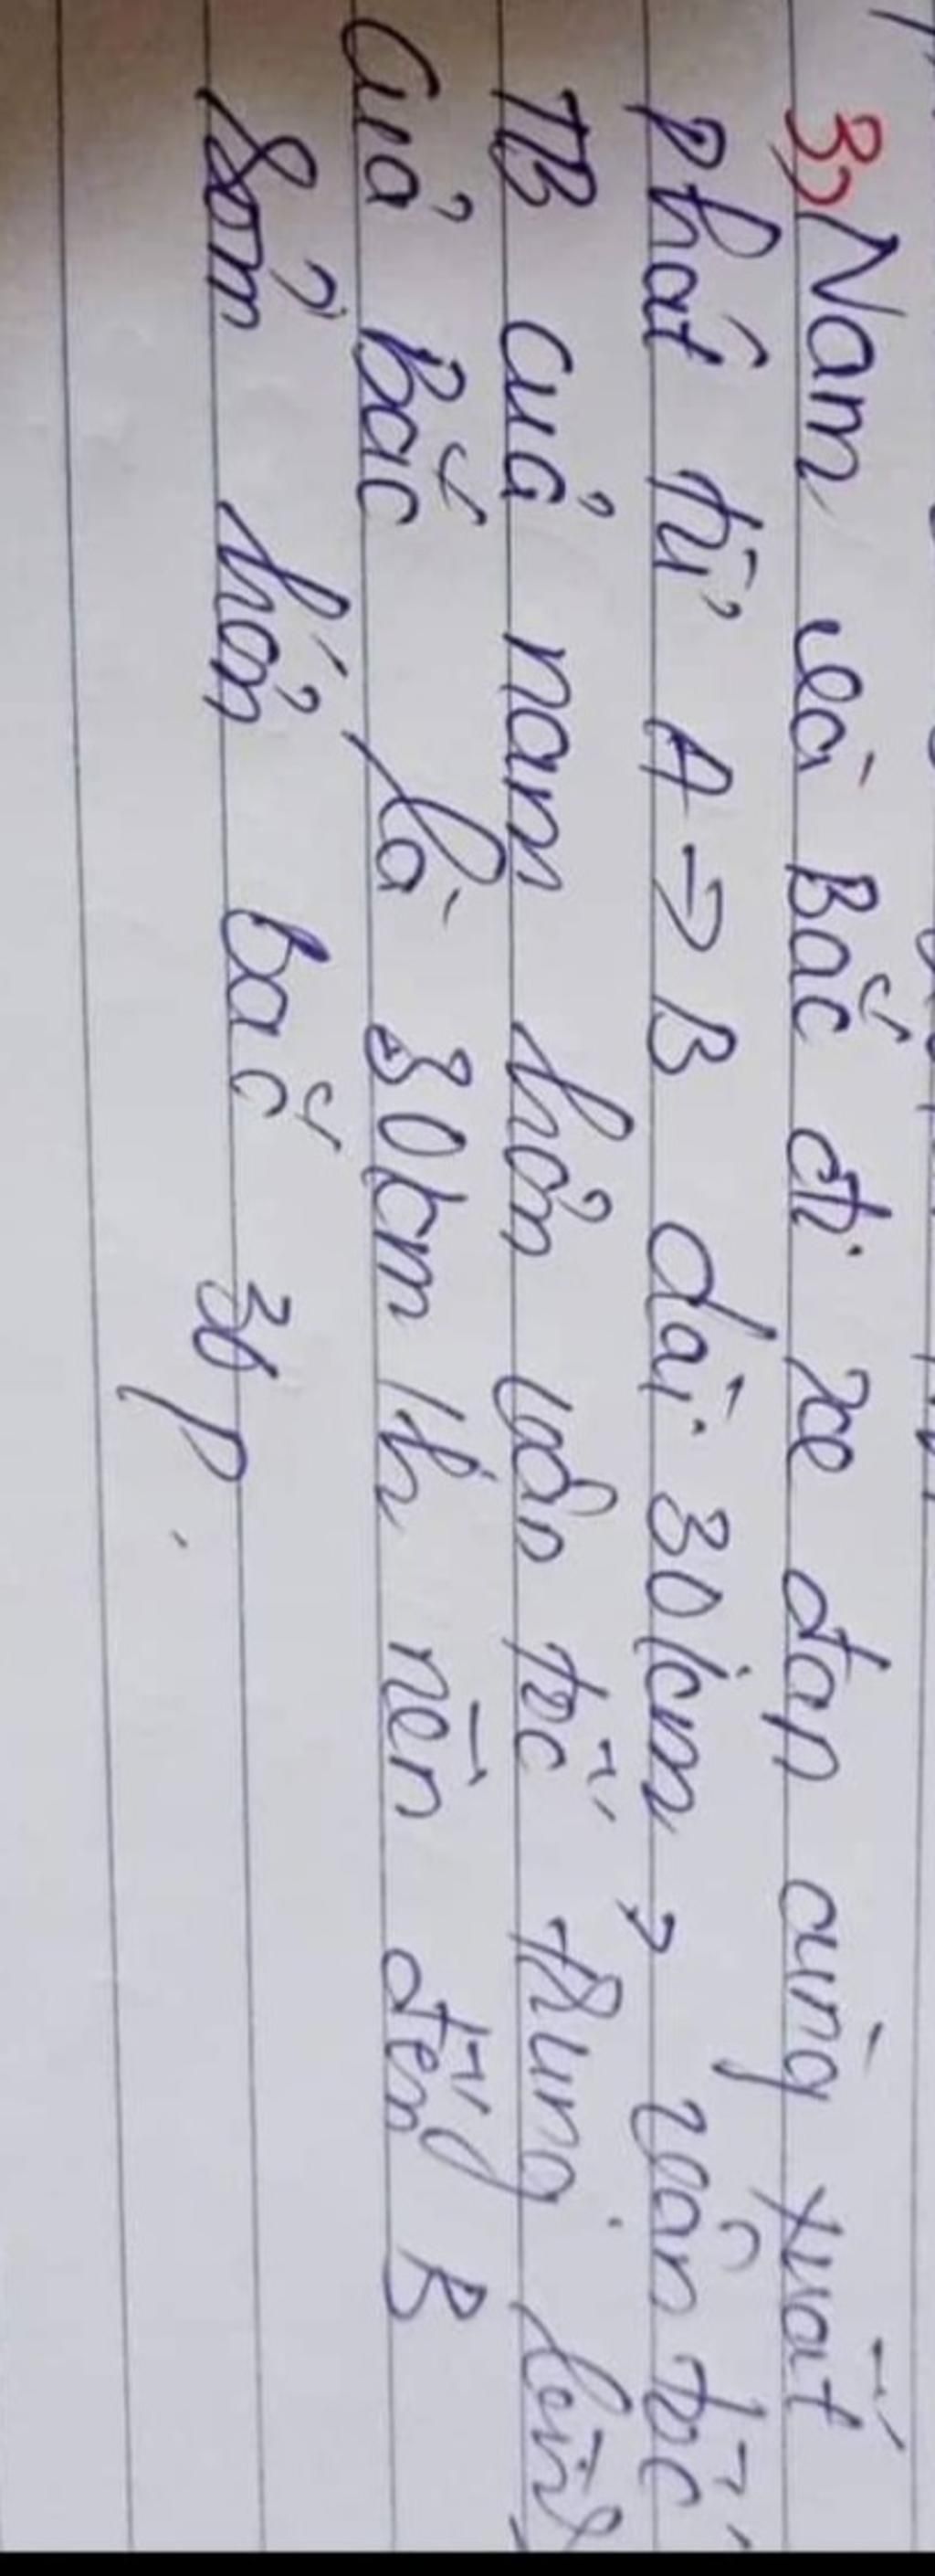 3) Nam và Bắc đi xe đạp cùng xuất
phát từ A → B dài 30km, vận tốc
TB của nam hơn vận tốc trung bình
của bắc là 30km/h nên đến B
sớm hơn bắc 30p.